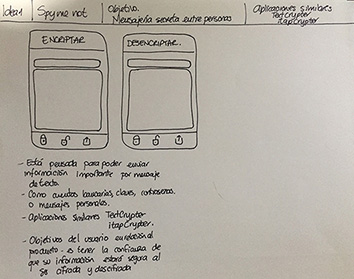 Idea 1
Spy me not
Objetivo.
Mensajería secreta entre personas
Aplicaciones similares
TextCrypter
itapCrypter
ENCRIPTAR
DESENCRIPTAR.
- Está pensada para poder enviar
información importante por mensaje
de texto.
- Como cuentas bancarias, claves, contraseñas
o mensajes personales.
- Aplicaciones similares TextCrypter
itapCrypter.
- Objetivos del usuario en relación al
producto - es tener la confianza de
que su información estará segura al
ser cifrada y descifrada